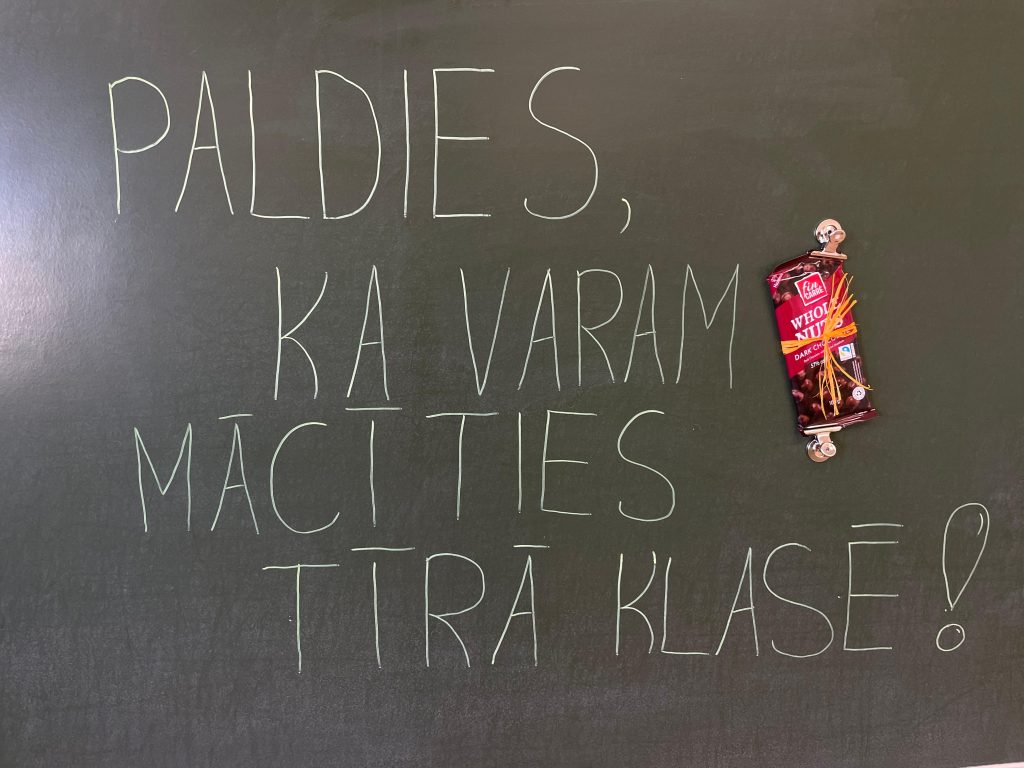 PALDIES,
KA VARAM
MĀCĪTIES
TĪRĀ KLASĒ!
fin
CARRÉ
WHOLE
NUTS
DARK CHO